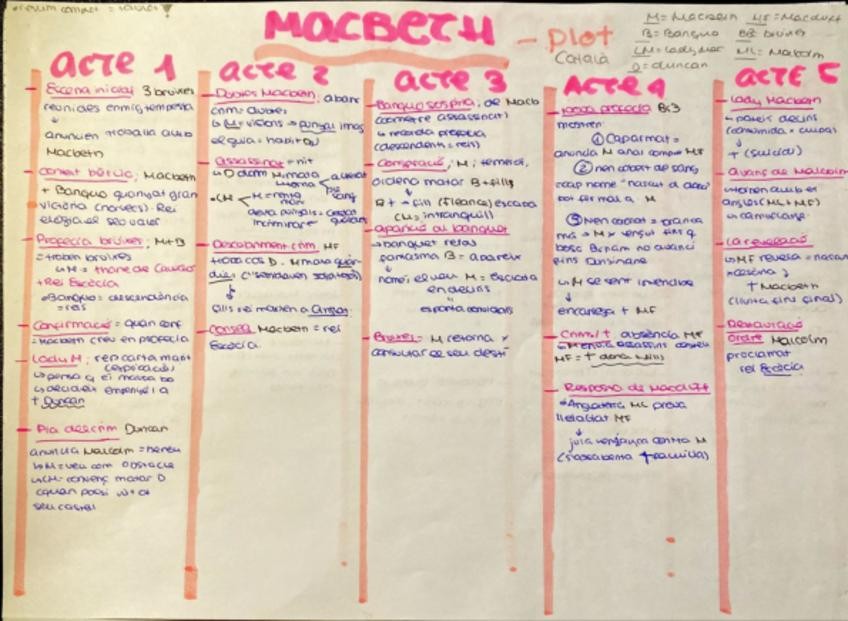 MACBETH - Plot
Català
M = Macbeth MF = Macduff
B = Banquo B3 bruixes
LM = Lady Mac ML = Malcolm
D = Duncan
acte 1
Escena inicial 3 bruixes
reunides enmig tempesta
anuncien trobada amb
Macbeth
Context bèl·lic; Macbeth
+ Banquo guanyat gran
victòria (noruecs). Rei
elogia el seu valor
Profecia bruixes; M+B
= troben bruixes
M = thane de Cawdor
+ Rei Escòcia
Banquo = descendència
= reis
Confirmació = quan conf
= Macbeth creu en profecia
Lady M; rep carta marit
pensa q ell massa bo
decideix empènyel a
+ Duncan
Pla del crim Duncan
anuncia Malcolm = hereu
M = veu com obstacle
LM = convenç matar D
seu castell
acte 2
Dubtes Macbeth; abans
crim = dubtes
M = visions → punyal imag
el guia = habit D
Assassinat = nit
D dorm M mata
Descobriment crim MF
troba cos D. M mata guàr-
dies
fills rei marxen a Angla.
Macbeth = rei
Escòcia.
acte 3
Banquo sospita; de Macb
(cometre assassinat)
recorda profecia
(descendents = reis)
Conspiració; M; temerós,
ordena matar B + fill
B + → fill (Fleance) escapa
(M = intranquil)
Aparició al banquet
banquet reial
fantasma B = apareix
només el veu M = esclata
en deliris
espanta convidats
Bruixes = M retorna x
consultar el seu destí
acte 4
Nova profecia B3
mostren:
① Cap armat =
anuncia M anar compte MF
② nen cobert de sang
cap home "nascut d dona"
pot fer mal a M
③ Nen coronat = branca
mà → M vençut fins q
bosc Birnam no avanci
fins Dunsinane
M se sent invencible
Crims/† absència MF
MF = † dona + fills
Resposta de Macduff
Anglaterra ML prova
lleialtat MF
jura venjança contra M
(s'assabenta † família)
acte 5
Lady Macbeth
pateix deliris
(consumida x culpa)
† (suïcidi)
Avanç de Malcolm
anglès (ML + MF)
La revelació
MF revela = nascut
cesària
† Macbeth
(lluita fins final)
Restauració
ordre Malcolm
proclamat
rei Escòcia